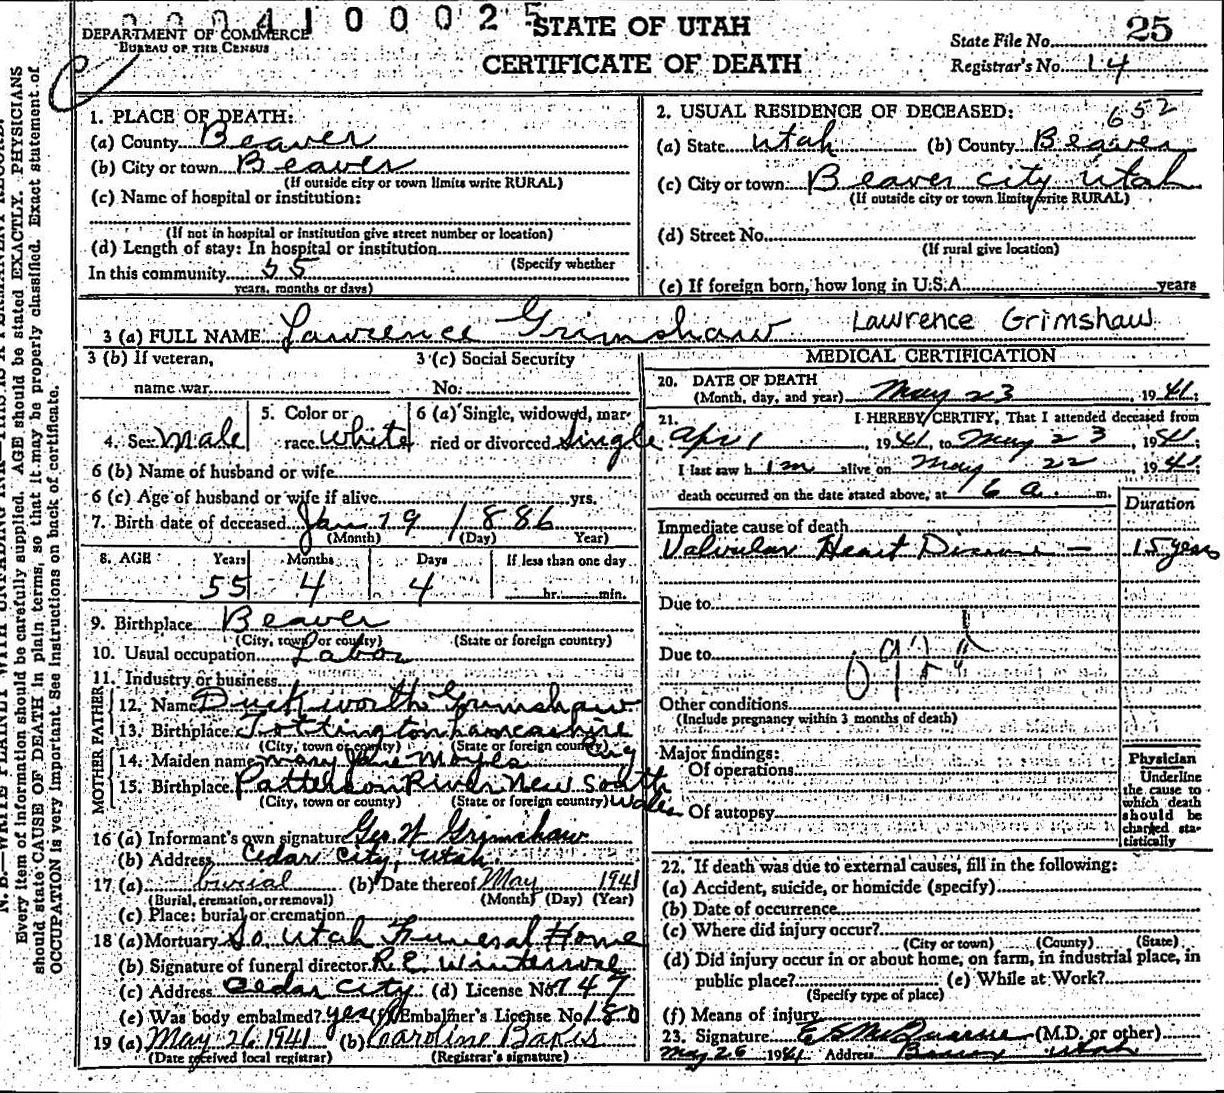 0004100025
DEPARTMENT OF COMMERCE
BUREAU OF THE CENSUS
STATE OF UTAH
CERTIFICATE OF DEATH
25
State File No.
Registrar's No. 14
N. B.—WRITE PLAINLY WITH UNFADING INK—THIS IS A PERMANENT RECORD.
Every item of information should be carefully supplied. AGE should be stated EXACTLY. PHYSICIANS
should state CAUSE OF DEATH in plain terms, so that it may be properly classified. Exact statement of
OCCUPATION is very important. See instructions on back of certificate.
1. PLACE OF DEATH:
(a) County Beaver
(b) City or town Beaver
(If outside city or town limits write RURAL)
(c) Name of hospital or institution:
(If not in hospital or institution give street number or location)
(d) Length of stay: In hospital or institution
(Specify whether
In this community 55
years, months or days)
2. USUAL RESIDENCE OF DECEASED:
652
(a) State Utah (b) County Beaver
(c) City or town Beaver city Utah
(If outside city or town limits write RURAL)
(d) Street No.
(If rural give location)
(e) If foreign born, how long in U.S.A. years
3 (a) FULL NAME Lawrence Grimshaw Lawrence Grimshaw
3 (b) If veteran,
name war
3 (c) Social Security
No.
4. Sex Male
5. Color or
race white
6 (a) Single, widowed, mar-
ried or divorced Single
6 (b) Name of husband or wife
6 (c) Age of husband or wife if alive yrs.
7. Birth date of deceased Jan 19 1886
(Month) (Day) Year)
8. AGE Years Months Days If less than one day
55 4 4 hr. min.
9. Birthplace Beaver
(City, town or county) (State or foreign country)
10. Usual occupation Labor
11. Industry or business
FATHER
12. Name Duckworth Grimshaw
13. Birthplace Tottington Lancashire
(City, town or county) (State or foreign country)
MOTHER
14. Maiden name Mary Jane Moyes
15. Birthplace Patterson River New South Wales
(City, town or county) (State or foreign country)
16 (a) Informant's own signature Geo. W Grimshaw
(b) Address Cedar City, Utah.
17 (a) burial (b) Date thereof May 1941
(Burial, cremation, or removal) (Month) (Day) (Year)
(c) Place: burial or cremation
18 (a) Mortuary So. Utah Funeral Home
(b) Signature of funeral director R.E.
(c) Address Cedar City (d) License No. 747
(e) Was body embalmed? yes (f) Embalmer's License No. 180
19 (a) May 26 1941 (b) Caroline
(Date received local registrar) (Registrar's signature)
MEDICAL CERTIFICATION
20. DATE OF DEATH
(Month, day, and year) May 23, 1941;
21. I HEREBY CERTIFY, That I attended deceased from
Apr 1 1941, to May 23, 1941;
I last saw him alive on May 22 1941;
death occurred on the date stated above, at 6 a. m.
Duration
Immediate cause of death
Valvular Heart Disease — 15 years
Due to
Due to
Other conditions
(Include pregnancy within 3 months of death)
Major findings:
Of operations
Of autopsy
Physician
Underline
the cause to
which death
should be
charged sta-
tistically
22. If death was due to external causes, fill in the following:
(a) Accident, suicide, or homicide (specify)
(b) Date of occurrence
(c) Where did injury occur?
(City or town) (County) (State)
(d) Did injury occur in or about home, on farm, in industrial place, in
public place? (e) While at Work?
(Specify type of place)
(f) Means of injury
23. Signature (M.D. or other)
May 26 1941 Address Beaver Utah